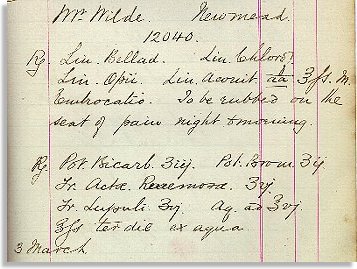 Mr. Wilde. Newmead.
12040.
Rx Lin. Bellad. Lin. Chlorof.
Lin. Opii. Lin. Aconit āā ʒfs. M.
Embrocatio. To be rubbed on the
seat of pain night & morning.
Rx Pot. Bicarb. ʒiij. Pot. Brom ʒij
Tr. Actæ Racemosæ. ʒij.
Tr. Lupuli ʒij. Aq ad ʒvj.
ʒfs ter die ex aqua
3 March